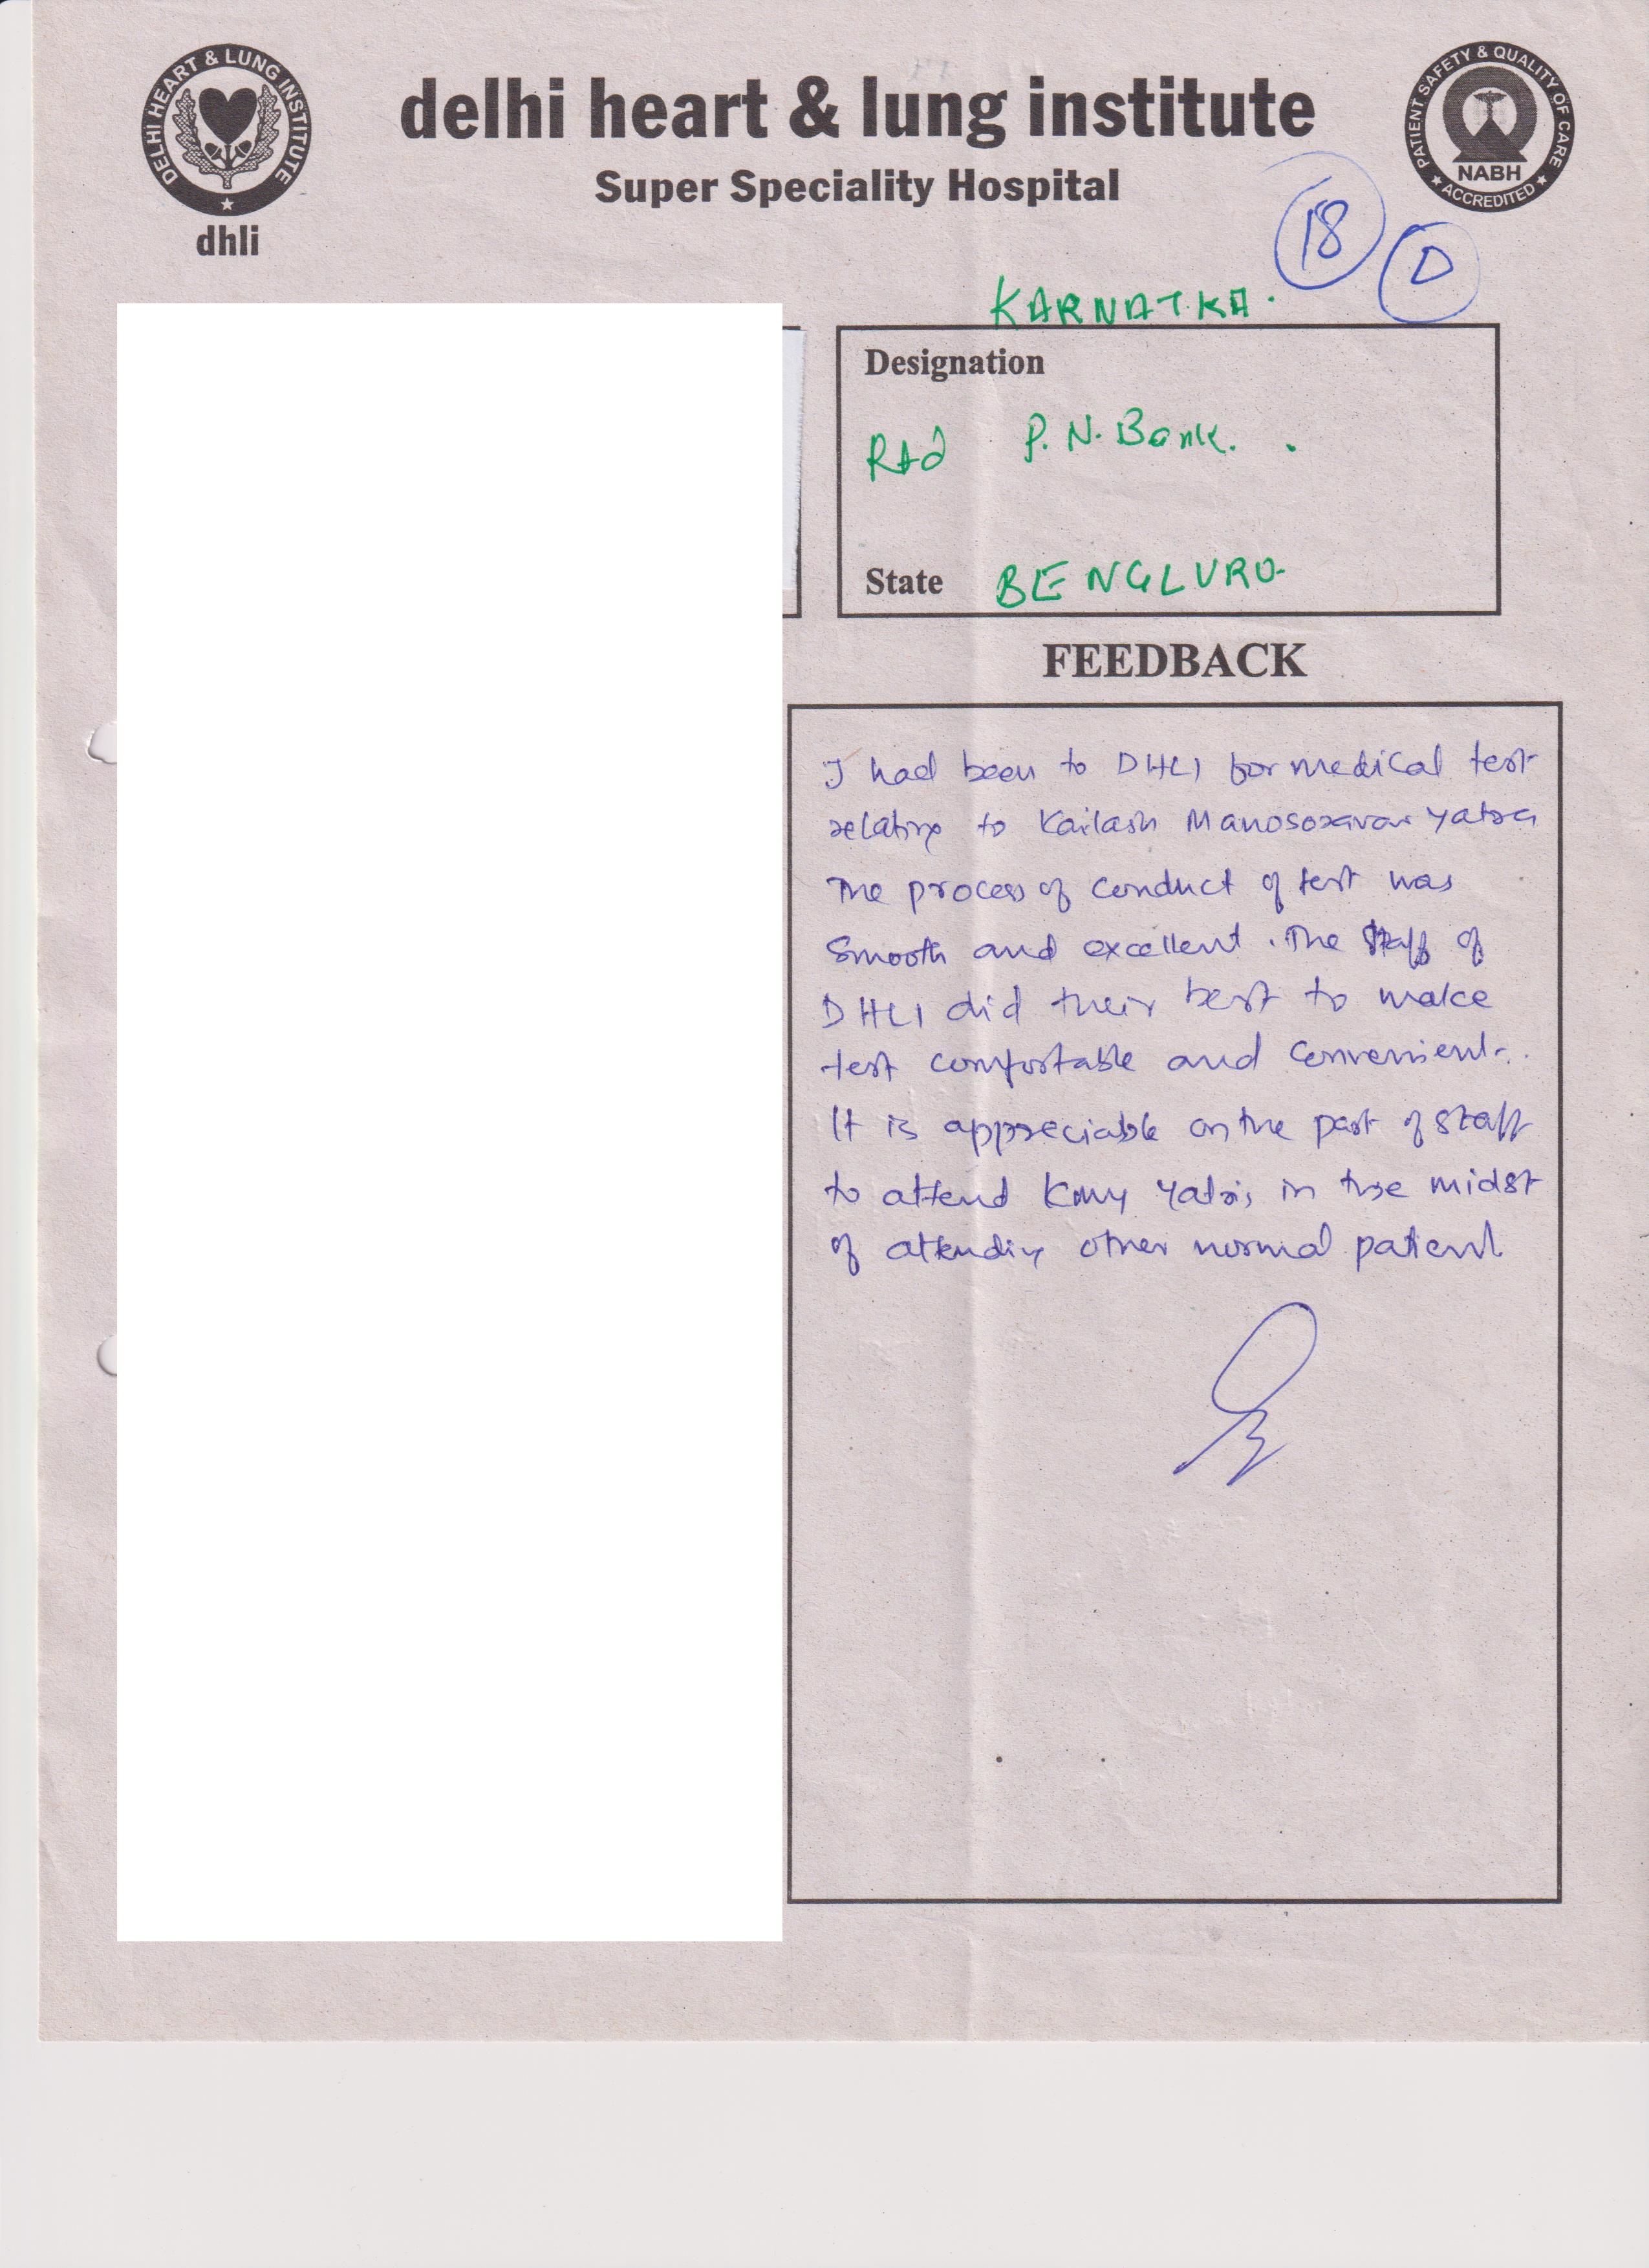 DELHI HEART & LUNG INSTITUTE
dhli
delhi heart & lung institute
Super Speciality Hospital
PATIENT SAFETY & QUALITY OF CARE
NABH
ACCREDITED
18
D
KARNATKA.
Designation
Rtd P.N. Bank.
State BENGLURU
FEEDBACK
I had been to DHLI for medical test
relating to Kailash Manosoravar Yatra
The process of conduct of test was
Smooth and excellent. The Staff of
DHLI did their best to make
test comfortable and convenient.
It is appreciable on the part of staff
to attend KMY Yatris in the midst
of attending other normal patient